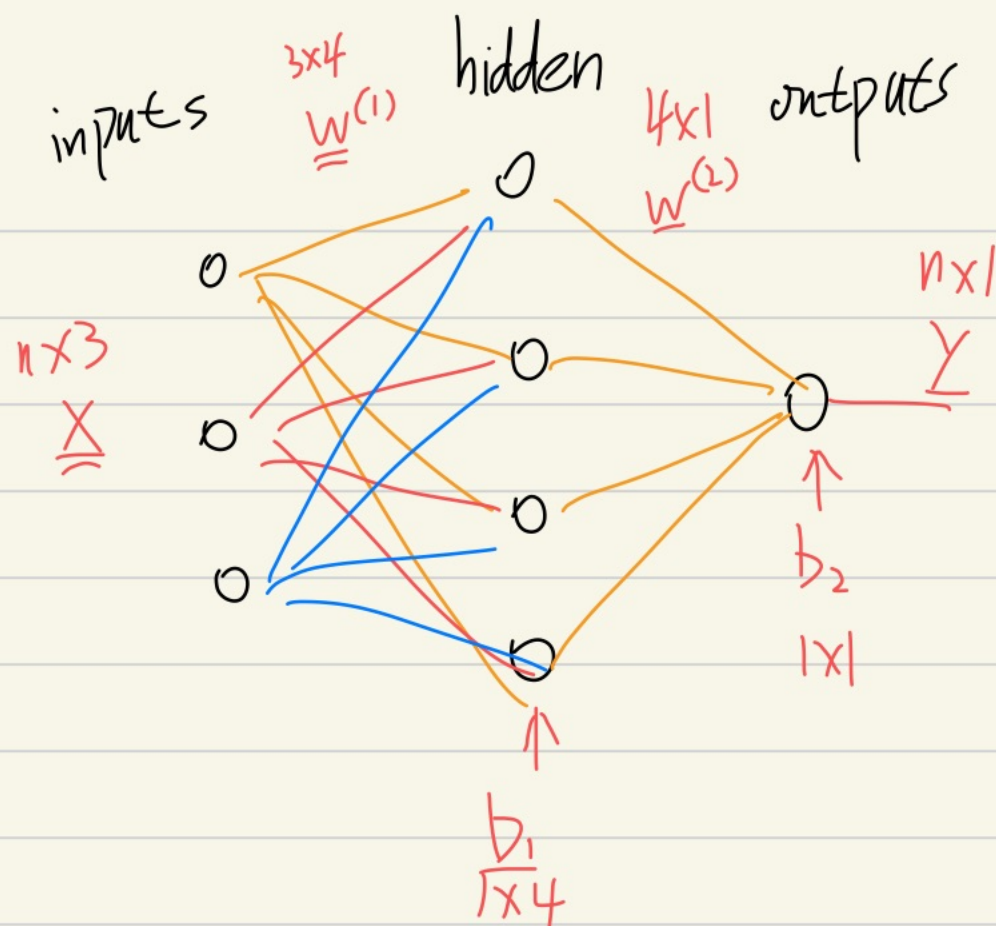 inputs
3x4
W^(1)
hidden
4x1
W^(2)
outputs
nx3
X
nx1
Y
b₂
1x1
b₁
1x4